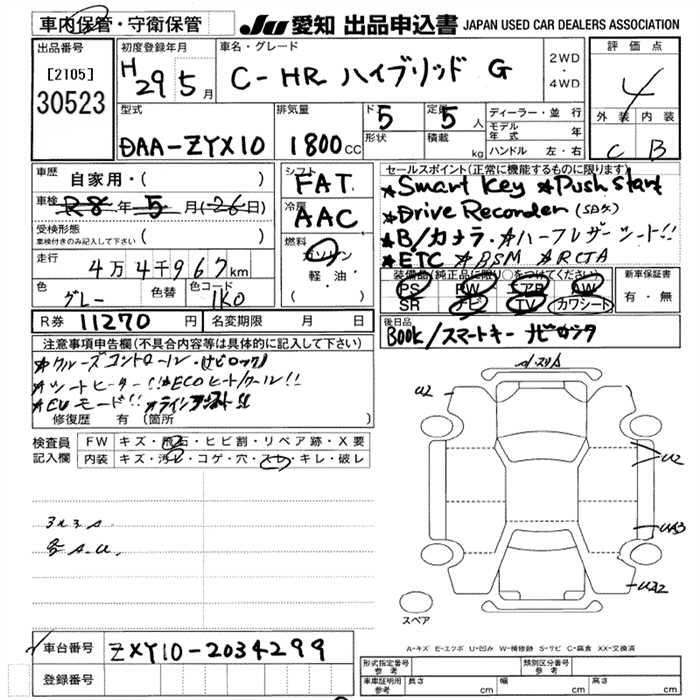 車内保管・守衛保管 JU 愛知 出品申込書 JAPAN USED CAR DEALERS ASSOCIATION
出品番号 初度登録年月 車名・グレード 評価点
[2105] H 29 5月 C-HR ハイブリッド G 2WD・4WD 4
30523
型式 排気量 ド 5 定員 5人 ディーラー・並行 外装 内装
DAA-ZYX10 1800CC 形状 積載 kg モデル年式 年 C B
ハンドル 左・右
車歴 自家用・( ) シフト FAT セールスポイント(正常に機能するものに限ります)
車検 R8年 5月(26日) 冷房 AAC ★Smart Key ★Push Start
★Drive Recorder
受検形態 車検付きのみ記入して下さい ( ) 燃料 ガソリン ★B/カメラ ★ハーフレザーシート!!
走行 4万4千967km 軽油・( ) ★ETC ★BSM ★RCTA
装備品(純正品に限り○をつけてください) 新車保証書
色 グレー 色替 色コード 1K0 PS PW エアB AW 有・無
SR ナビ TV カワシート
R券 11270円 名変期限 月 日 後日品
Book/スマートキー
注意事項申告欄(不具合内容等は具体的に記入して下さい)
★クルーズコントロール
★シートヒーター!! ★ECOヒート/クール!!
★EVモード!!
修復歴 有(箇所 )
検査員記入欄 FW キズ・飛石・ヒビ割・リペア跡・X要
内装 キズ・汚レ・コゲ・穴・スレ・キレ・破レ
U2
U2
UA3
UA2
各A.U.
スペア
A-キズ E-エクボ U-凹み W-補修跡 S-サビ C-腐食 XX-交換済
車台番号 ZYX10-2034299
登録番号
形式指定番号 参考 類別区分番号 参考
車庫証明用 参考 長さ cm 幅 cm 高さ cm